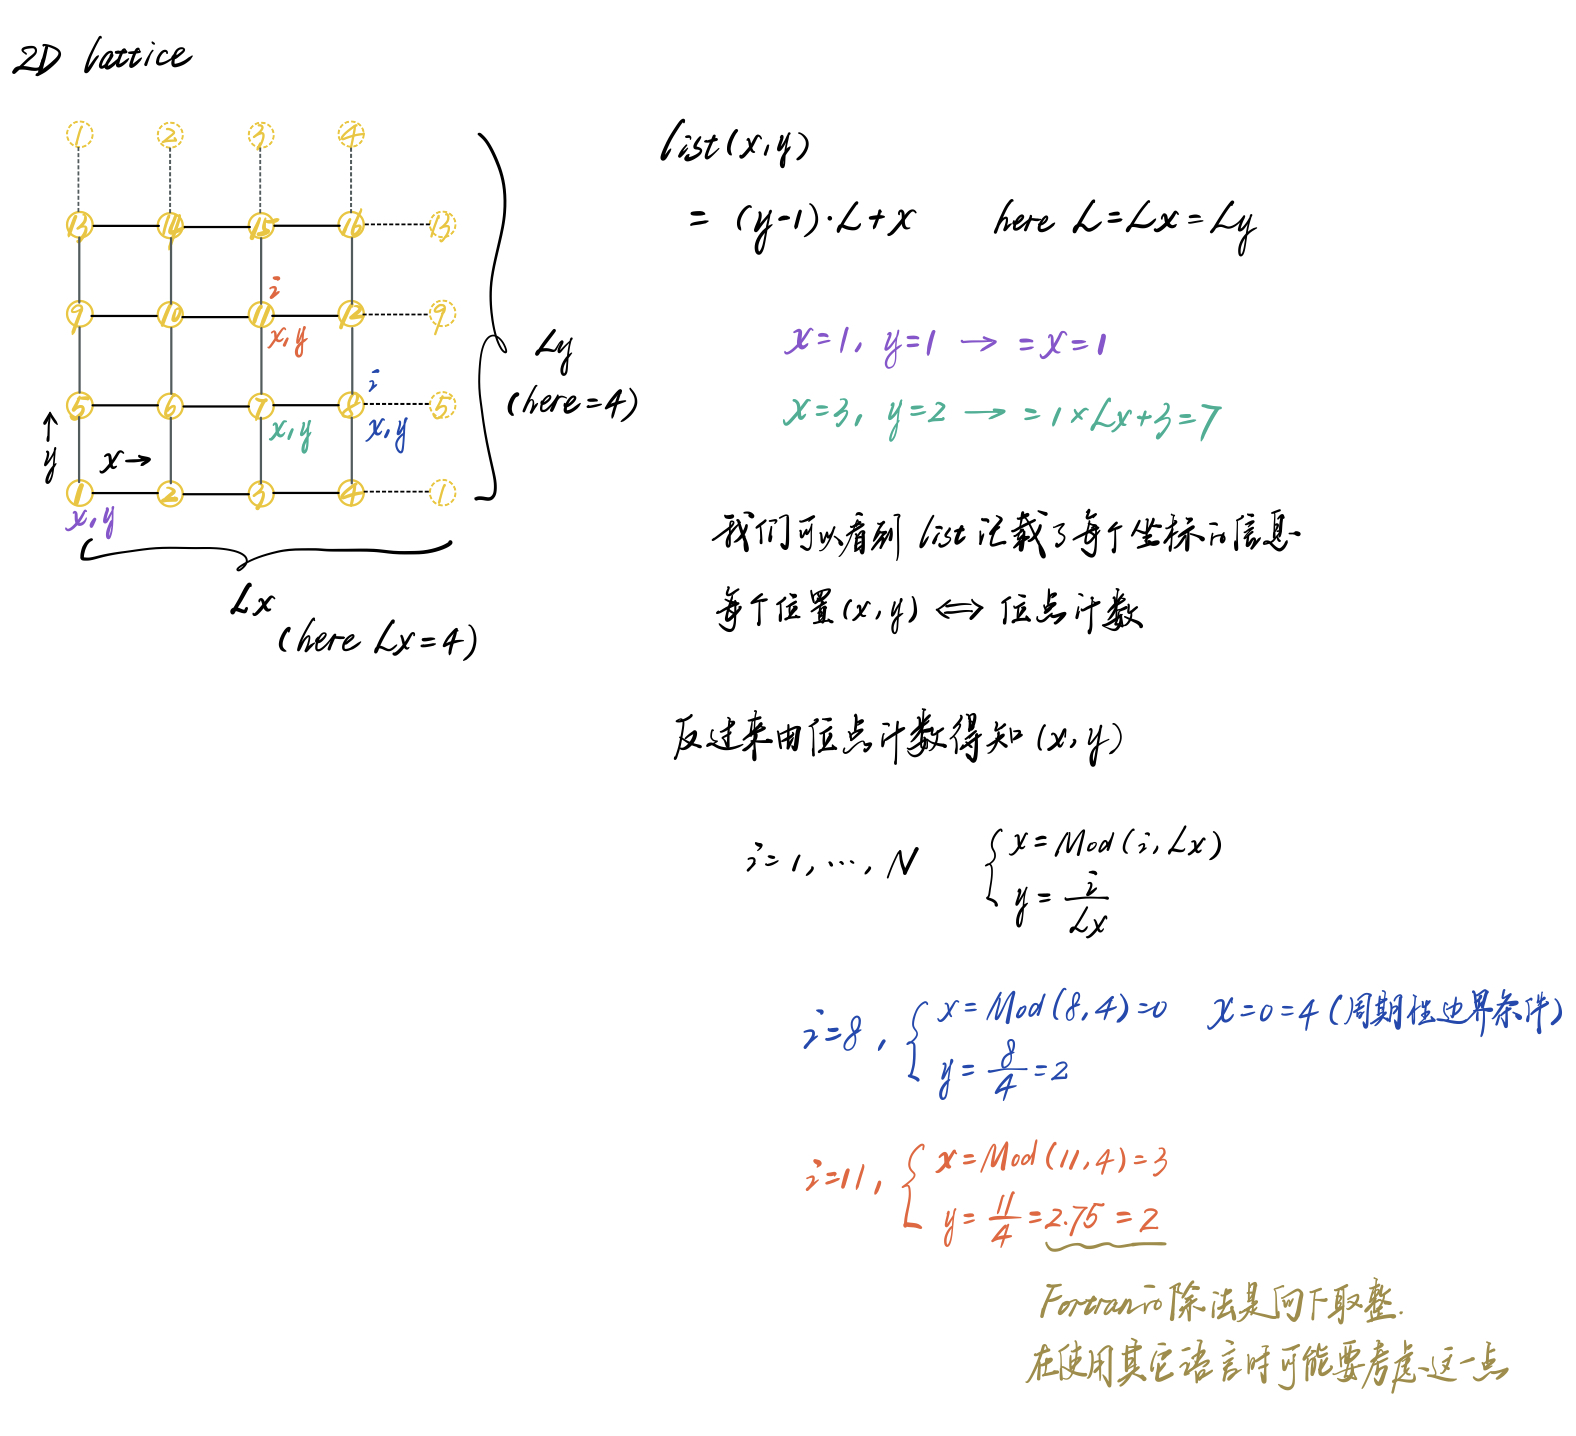 2D lattice
1 2 3 4
13 14 15 16 13
i
9 10 11 12 9
x,y
i
5 6 7 8 5
x,y x,y
y x→
1 2 3 4 1
x,y
Lx
(here Lx=4)
Ly
(here=4)
list(x,y)
= (y-1)·L+x here L=Lx=Ly
x=1, y=1 → =x=1
x=3, y=2 → =1×Lx+3=7
我们可以看到 list 记载了每个坐标的信息.
每个位置(x,y) ⇔ 位点计数
反过来由位点计数得知 (x,y)
i=1,…,N { x=Mod(i,Lx)
y= i/Lx
i=8, { x=Mod(8,4)=0 x=0=4 (周期性边界条件)
y= 8/4 =2
i=11, { x=Mod(11,4)=3
y= 11/4 =2.75 =2
Fortran的除法是向下取整.
在使用其它语言时可能要考虑这一点